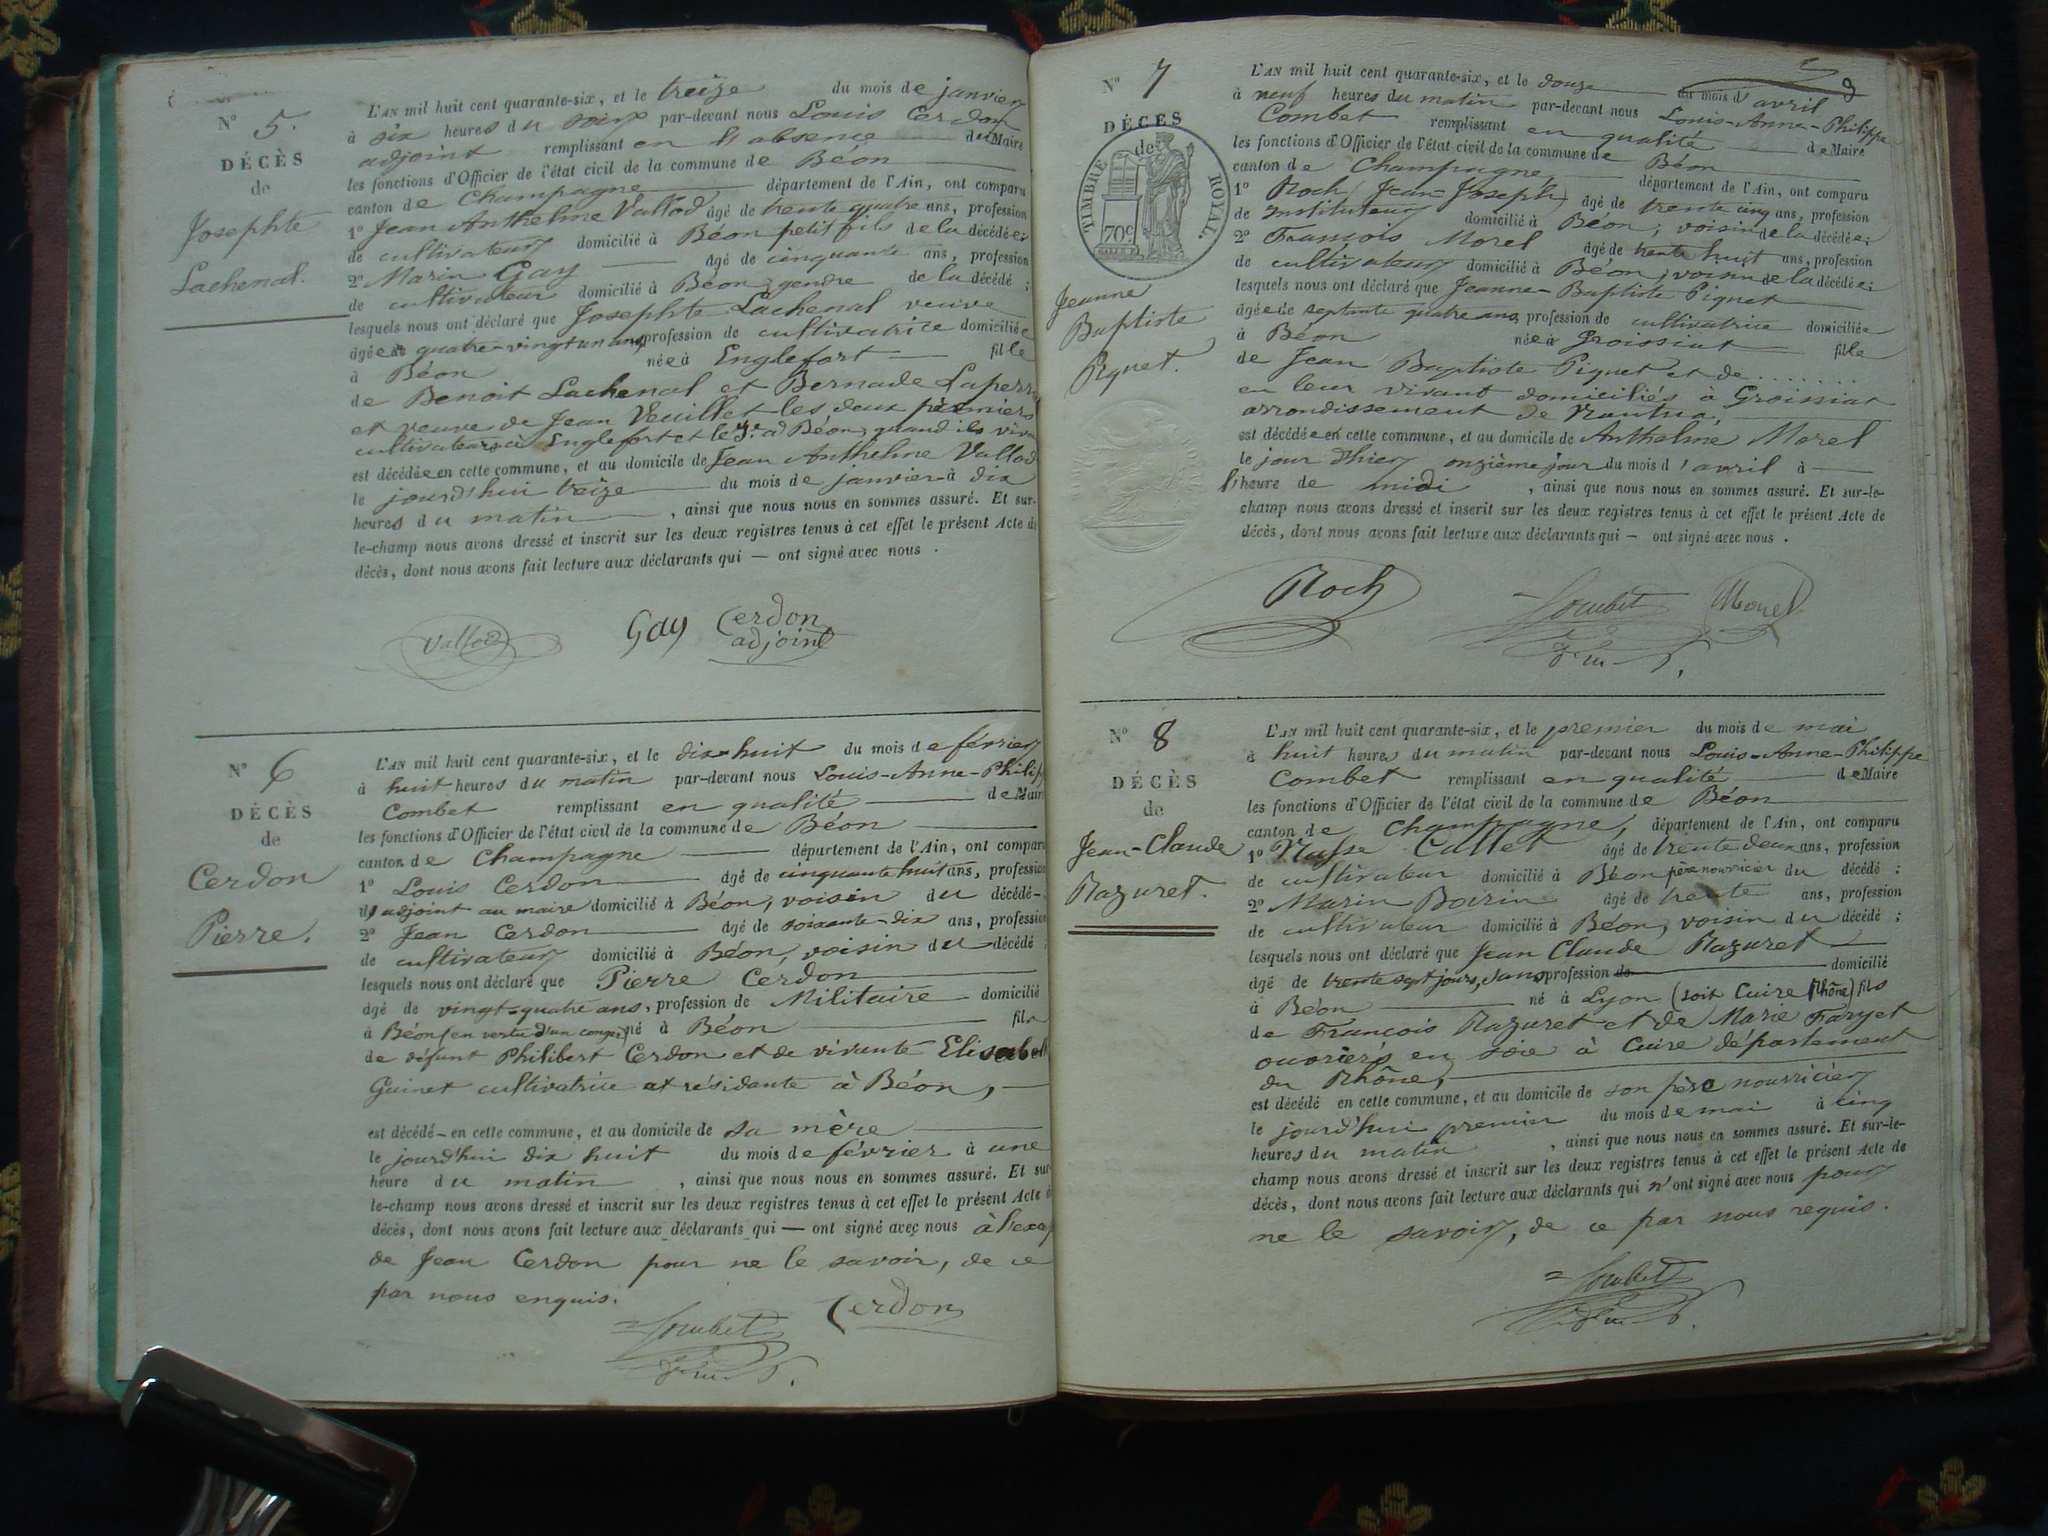 N° 5.
DÉCÈS
de
Josephte
Lachenal.
L'AN mil huit cent quarante-six, et le treize du mois de janvier
à six heures du soir par-devant nous Louis Cerdon
adjoint remplissant en l'absence du Maire
les fonctions d'Officier de l'état civil de la commune de Béon
canton de Champagne département de l'Ain, ont comparu
1° Jean Anthelme Vallod âgé de trente quatre ans, profession
de cultivateur domicilié à Béon petit fils de la décédée;
2° Marin Gay âgé de cinquante ans, profession
de cultivateur domicilié à Béon, gendre de la décédé ;
lesquels nous ont déclaré que Josephte Lachenal veuve
âgée de quatre-vingt un ans, profession de cultivatrice domiciliée
à Béon née à Englefort fille
de Benoit Lachenal et Bernade Laperr
et veuve de Jean Veuillet les deux premiers
cultivateurs à Englefort et le 3e à Béon, quand ils viv
est décédée en cette commune, et au domicile de Jean Anthelme Vallod
le jourd'hui treize du mois de janvier à dix
heures du matin , ainsi que nous nous en sommes assuré. Et sur-
le-champ nous avons dressé et inscrit sur les deux registres tenus à cet effet le présent Acte de
décès, dont nous avons fait lecture aux déclarants qui — ont signé avec nous .
Vallod Gay Cerdon
adjoint
N° 6
DÉCÈS
de
Cerdon
Pierre.
L'AN mil huit cent quarante-six, et le dix-huit du mois de février
à huit heures du matin par-devant nous Louis-Anne-Philip
Combet remplissant en qualité de Maire
les fonctions d'Officier de l'état civil de la commune de Béon
canton de Champagne département de l'Ain, ont comparu
1° Louis Cerdon âgé de cinquante huit ans, profession
d'adjoint au maire domicilié à Béon, voisin du décédé
2° Jean Cerdon âgé de soixante-dix ans, profession
de cultivateur domicilié à Béon, voisin du décédé ;
lesquels nous ont déclaré que Pierre Cerdon
âgé de vingt-quatre ans, profession de Militaire domicilié
à Béon (en vertu d'un congé) né à Béon fils
de défunt Philibert Cerdon et de vivante Elisabeth
Guinet cultivatrice et résidante à Béon,
est décédé en cette commune, et au domicile de sa mère
le jourd'hui dix huit du mois de février à une
heure du matin , ainsi que nous nous en sommes assuré. Et sur
le-champ nous avons dressé et inscrit sur les deux registres tenus à cet effet le présent Acte d
décès, dont nous avons fait lecture aux déclarants qui — ont signé avec nous à l'excep
de Jean Cerdon pour ne le savoir, de ce
par nous enquis.
Combet Cerdon
N° 7
DÉCÈS
de
TIMBRE ROYAL.
70c
Jeanne
Baptiste
Piquet.
L'AN mil huit cent quarante-six, et le douze du mois d'avril
à neuf heures du matin par-devant nous Louis-Anne-Philippe
Combet remplissant en qualité de Maire
les fonctions d'Officier de l'état civil de la commune de Béon
canton de Champagne, département de l'Ain, ont comparu
1° Roch Jean-Joseph, âgé de trente cinq ans, profession
de Instituteur domicilié à Béon, voisin de la décédée;
2° François Morel âgé de trente huit ans, profession
de cultivateur domicilié à Béon, voisin de la décédée;
lesquels nous ont déclaré que Jeanne-Baptiste Piquet
âgée de septante quatre ans, profession de cultivatrice domiciliée
à Béon née à Groissiat fille
de Jean Baptiste Piquet et de ........
en leur vivant domiciliés à Groissiat
arrondissement de Nantua,
est décédée en cette commune, et au domicile de Anthelme Morel
le jour d'hier onzième jour du mois d'avril à
l'heure de midi , ainsi que nous nous en sommes assuré. Et sur-le-
champ nous avons dressé et inscrit sur les deux registres tenus à cet effet le présent Acte de
décès, dont nous avons fait lecture aux déclarants qui — ont signé avec nous .
Roch Combet Morel
N° 8
DÉCÈS
de
Jean-Claude
Razuret.
L'AN mil huit cent quarante-six, et le premier du mois de mai
à huit heures du matin par-devant nous Louis-Anne-Philippe
Combet remplissant en qualité de Maire
les fonctions d'Officier de l'état civil de la commune de Béon
canton de Champagne, département de l'Ain, ont comparu
1° Callet âgé de trente deux ans, profession
de cultivateur domicilié à Béon père nourricier du décédé ;
2° Marin Boirin âgé de trente ans, profession
de cultivateur domicilié à Béon, voisin du décédé ;
lesquels nous ont déclaré que Jean Claude Razuret
âgé de trente sept jours, sans profession de domicilié
à Béon né à Lyon (soit Cuire Rhône) fils
de François Razuret et de Marie Faryet
ouvriers en soie à Cuire département
du Rhône,
est décédé en cette commune, et au domicile de son père nourricier
le jourd'hui premier du mois de mai à cinq
heures du matin , ainsi que nous nous en sommes assuré. Et sur-le-
champ nous avons dressé et inscrit sur les deux registres tenus à cet effet le présent Acte de
décès, dont nous avons fait lecture aux déclarants qui n'ont signé avec nous pour
ne le savoir, de ce par nous requis.
Combet